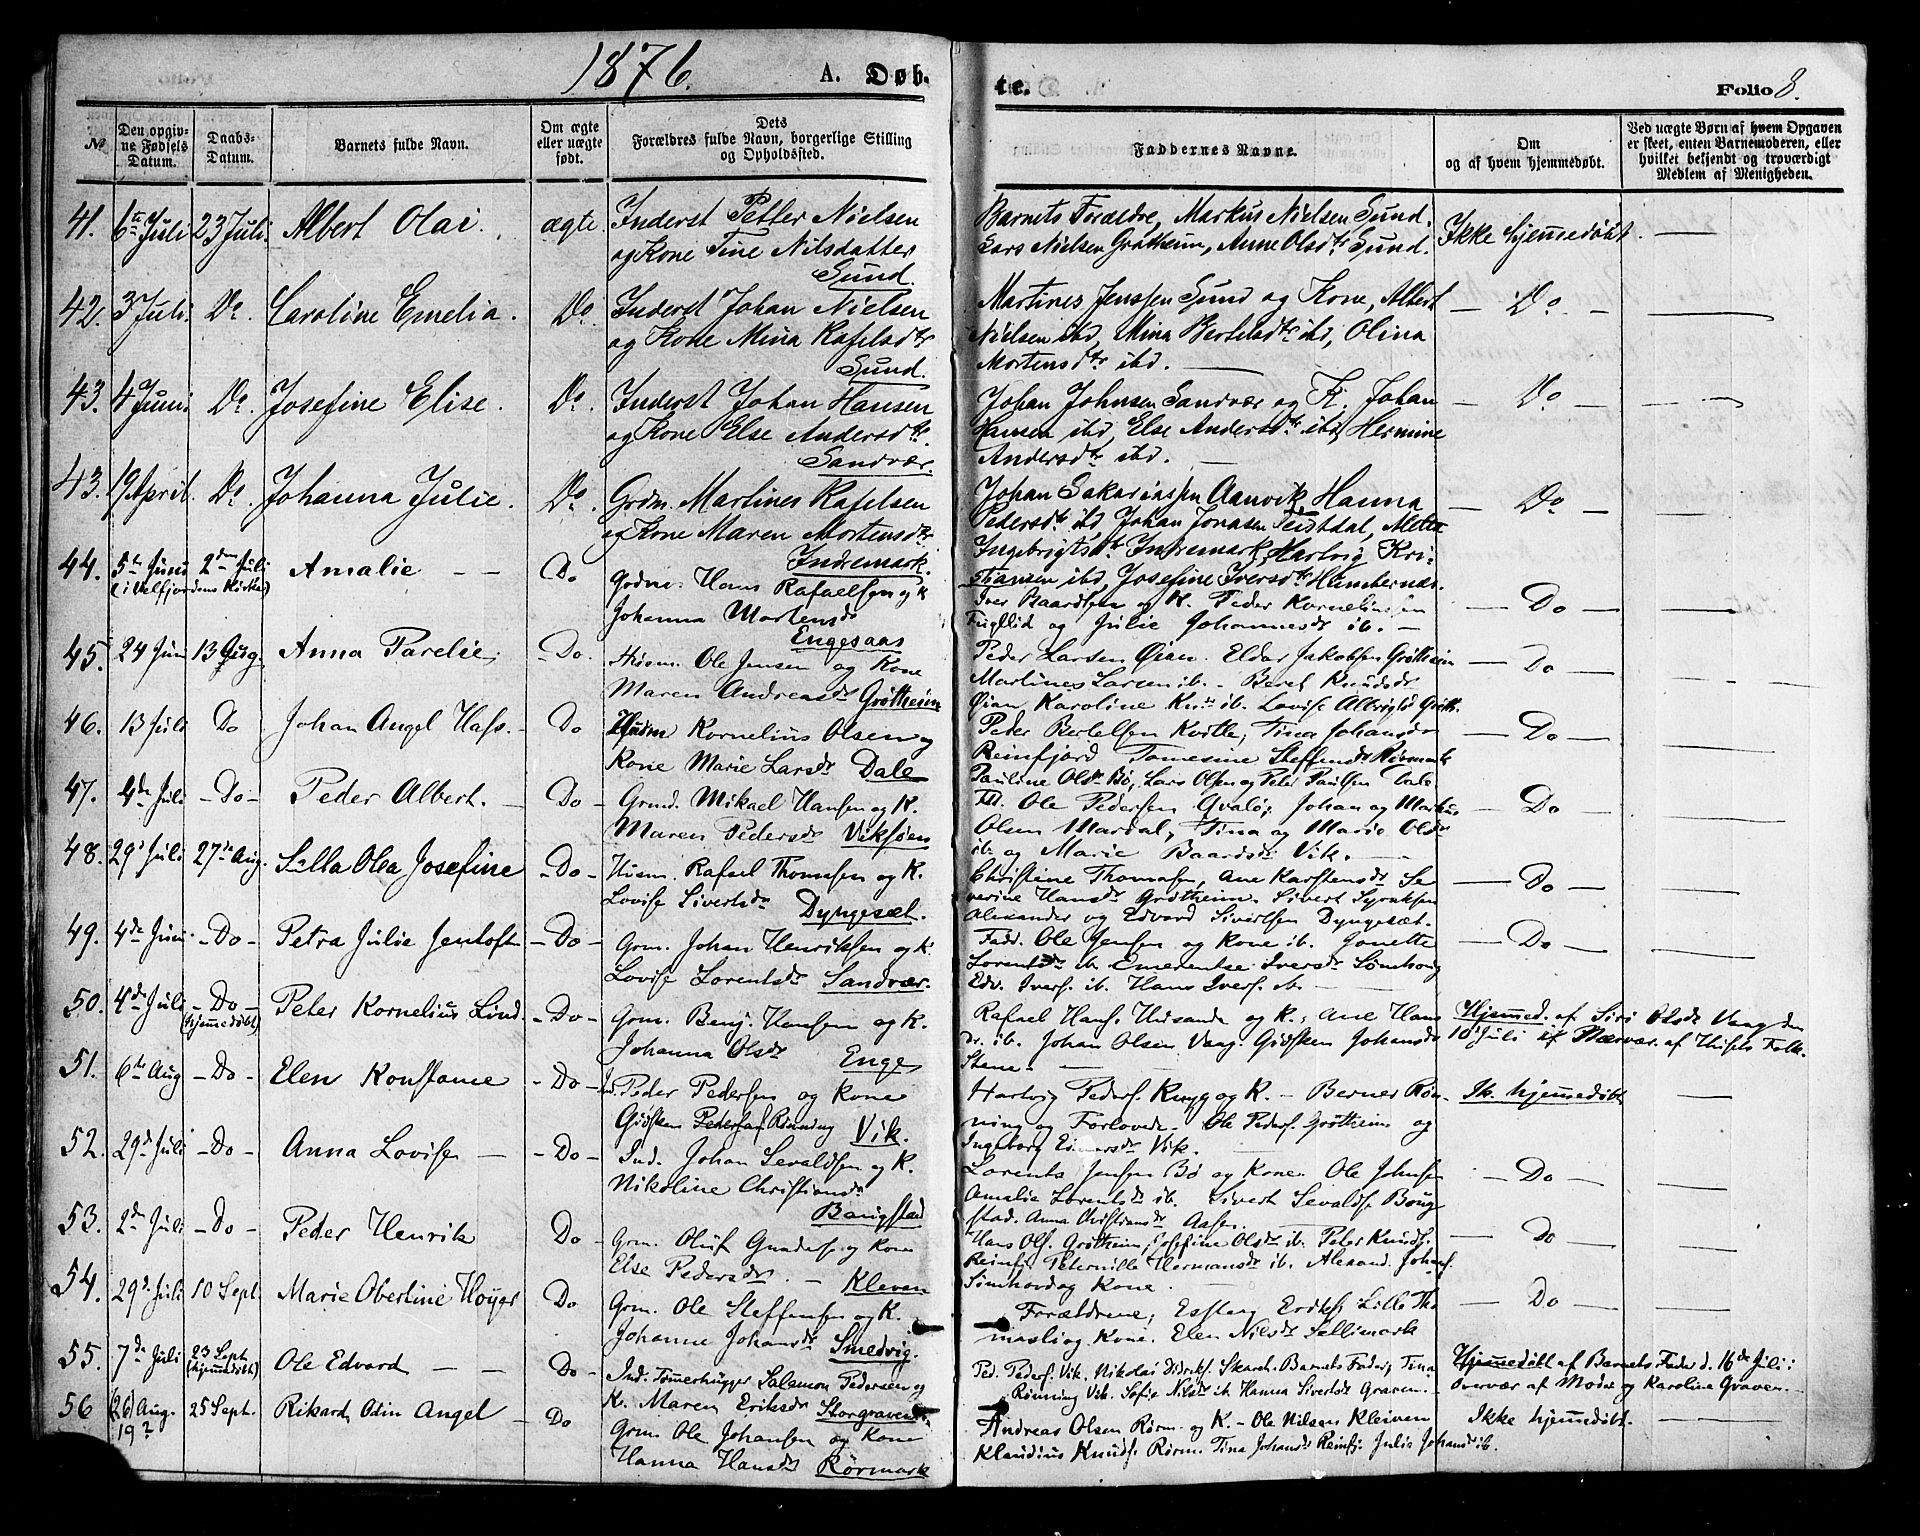 1876.
A. Døb-
te.
Folio 8.
№
Den opgiv-
ne Fødsels
Datum.
Daabs-
Datum.
Barnets fulde Navn.
Om ægte
eller uægte
født.
Dets
Forældres fulde Navn, borgerlige Stilling
og Opholdssted.
Faddernes Navne.
Om
og af hvem hjemmedøbt.
Ved uægte Børn af hvem Opgaven
er skeet, enten Barnemoderen, eller
hvilket bekjendt og troværdigt
Medlem af Menigheden.
41. 6te Juli 23 Juli. Albert Olai. ægte.
Inderst Petter Nielsen
og Kone Tine Nilsdatter
Sund.
Barnets Forældre, Markus Nielsen Sund.
Lars Nielsen Grøtheim, Anne Olsdtr Sund.
Ikke hjemmedøbt. —
42. 3 Juli. Do. Caroline Emelia. Do.
Inderst Johan Nielsen
og Kone Mina Rafelsdtr
Sund.
Martines Jenssen Sund og Kone, Albert
Nielsen ibd, Mina Bertelsdtr ibd, Olina
Mortensdtr ibd. —
— Do. —
43. 4 Juni Do. Josefine Elise. Do.
Inderst Johan Hansen
og Kone Else Andersdtr.
Sandvær.
Johan Johnsen Sandvær og K. Johan
Hansen ibd, Else Andersdtr ibd, Hermine
Andersdtr ibd. —
— Do —
43. 19 April. Do. Johanna Julie. Do.
Grdm. Martines Rafelsen
og Kone Maren Mortensdtr
Indremark.
Johan Sakariassen Aanvik Hanna
Pedersdtr ibd Johan Jonasen Teistdal, Mette
Ingebrigtsdtr Indremark, Hartvig Kri-
stiansen ibd, Josefine Iversdtr Humternær.
— Do —
44. 5te Juni 2den Juli
(i Velfjordens Kirke) Amalie — — Do
Godm. Hans Rafaelsen og K
Johanna Mortensdr
Engesaas
Iver Baardsen og K. Peder Kornelinsen
Fugllid og Julie Johannesdr ib. —
— Do —
45. 24 Juni 13 Aug. Anna Parelie, — Do.
Husm. Ole Jensen og Kone
Maren Andreasdr Grøtheim
Peder Larsen Øian. Elder Jakobsen Grøtheim
Martines Larsen ib. — Beret Knudsdr
Øian Karoline Knds ib. Lovise Albrigtd Grøth.
— Do —
46. 13 Juli Do Johan Angel Hafs. — Do
Husm Kornelius Olsen og
Kone Marie Larsdr Dale
Peder Bertelsen Kvitle, Tina Johansdr
Reinfjord Tomesine Steffensdr Rørmark
Pauline Olsdr Bø, Lars Olsen og Peter Paulsen Dale
— Do —
47. 4de Juli — Do — Peder Albert. — Do —
Grmd. Mikael Hansen og K.
Maren Pedersdr Viksøen
Fll. Ole Pedersen Qvalø, Johan og Markus
Olsen Mardal, Tina og Marie Olsdr
ib. og Marie Baardsdr Vik. —
— Do —
48. 29de Juli 27de Aug. Lilla Olea Josefine — Do —
Husm. Rafael Thomasen og K.
Lovise Sivertsdr Dyngesæt.
Christine Thomasen, Ane Karstensdr Se-
verine Hansdr Grøtheim. Sivert Syraksen
Alexander og Edvard Sivertsen Dyngesæt.
— Do —
49. 4de Juni — Do — Petra Julie Jentoft — Do —
Grm. Johan Henriksen og K.
Lovise Lorentsdr Sandvær.
Fadd. Ole Jensen og Kone ib. Jonette
Lorentsdr ib. Emerentse Iversdr Sømhovig
Edv. Ivers. ib. Hans Ivers. ib. —
— Do —
50. 4de Juli — Do —
(Hjemmedøbt) Peter Kornelius Lind. — Do —
Grm. Benj. Hansen og K.
Johanna Olsdr Enge
Rafael Hans. Husande og K., Ane Hans
dr. ib. Johan Olsen Vaag. Gjøsken Johansdr
Stene. —
Hjemmed. af Siri Olsdr Vaag den
10 Juli i Nærvær. af Husets Folk.
51. 6te Aug — Do — Elen Konstanse — Do —
Ind. Peder Pedersen og Kone
Gjøsken Petersen Rønning Vik.
Hartvig Peders. Kryg og K. — Berner Røn-
ning og Forlovede. Ole Peders. Grøtheim og
Ingeborg Einersdr Vik.
Ik. hjemmedøbt —
52. 29de Juli — Do — Anna Lovise — — Do —
Ind. Johan Sevaldsen og K.
Nikoline Christiansdr
Bangstad
Lorents Jensen Bø og Kone. Ole Johnsen
Amalie Lorentsdr ib. Sivert Sevalds. Bang-
stad. Anna Christiansdr Aasen.
— Do —
53. 2de Juli — Do — Peder Henrik Do —
Grm. Oluf Gunders. og Kone
Else Pedersdr. — Kleven
Hans Ols. Grøtheim, Josefine Olsdr ib. Peter Knuds.
Reinfj. Peternille Hermansdr ib. Alexand. Johans.
Sømhovd og Kone.
— Do —
54. 29de Juli 10 Sept. Marie Obertine Høyer Do
Grm. Ole Steffensen og K.
Johanne Johansdr Smedvig.
Forældrene, Esften Eriks. Lille Tho-
masli og Kone. Elen Nilsdr Sellimark
— Do —
55. 7de Juli 23 Sept.
(hjemmedøbt) Ole Edvard — — Do —
Ind. Tømmerhugger Salemon Pedersen og
K. Maren Eriksdr Storgraven.
Ped. Peders. Vik. Nikolai Didriks. Skarst. Barnets Fader, Tina
Rønning Vik. Sofie Nilsdr ib. Hanna Sivertsdr Graven. —
Hjemmedøbt af Barnets Fader d. 16de Juli i
Overvær af Modr. og Karoline Graven. —
56 (26) Aug.
19? 25 Sept. Rikard Odin Angel — Do
Grm. Ole Johansen og Kone
Hanna Hansdr Rørmark
Andreas Olsen Rørm. og K. — Ole Nilsen Kleiven
Klaudius Knuds. Rørm. Tina Johansdr Reinfj. Julie Johansd ib.
Ikke hjemmedøbt. — —